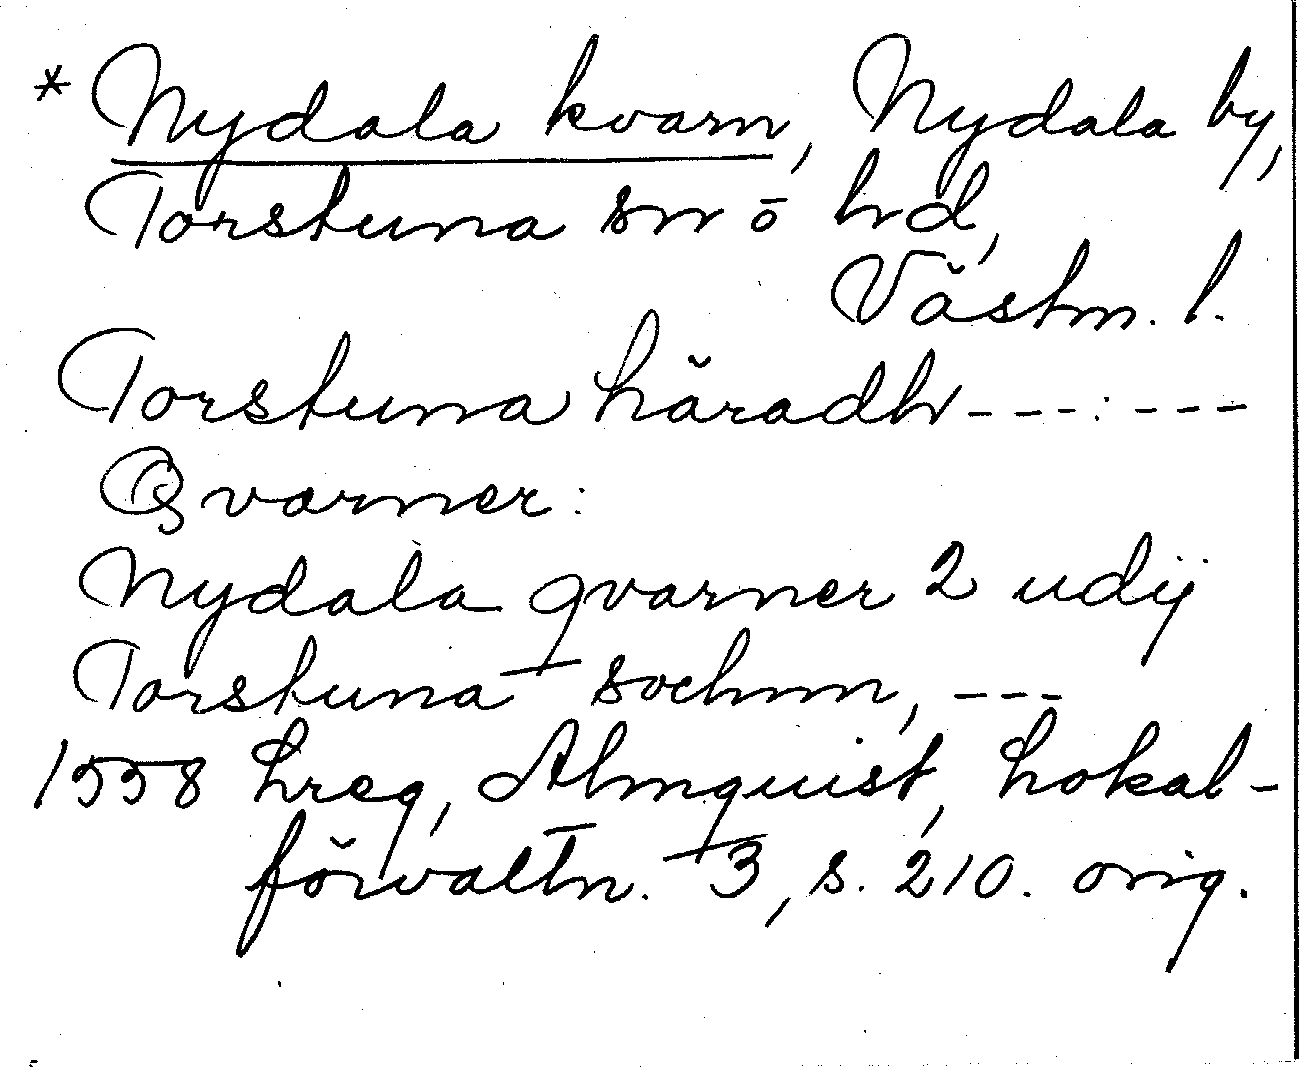 * Nydala kvarn, Nydala by,
Torstuna sn o hd,
Västm. l.
Torstuna häradh---:---
Qvarner:
Nydala qvarner 2 udij
Torstuna sochnn, ---
1558 Lreg, Almquist, Lokal-
förvaltn. 3, s. 210. orig.